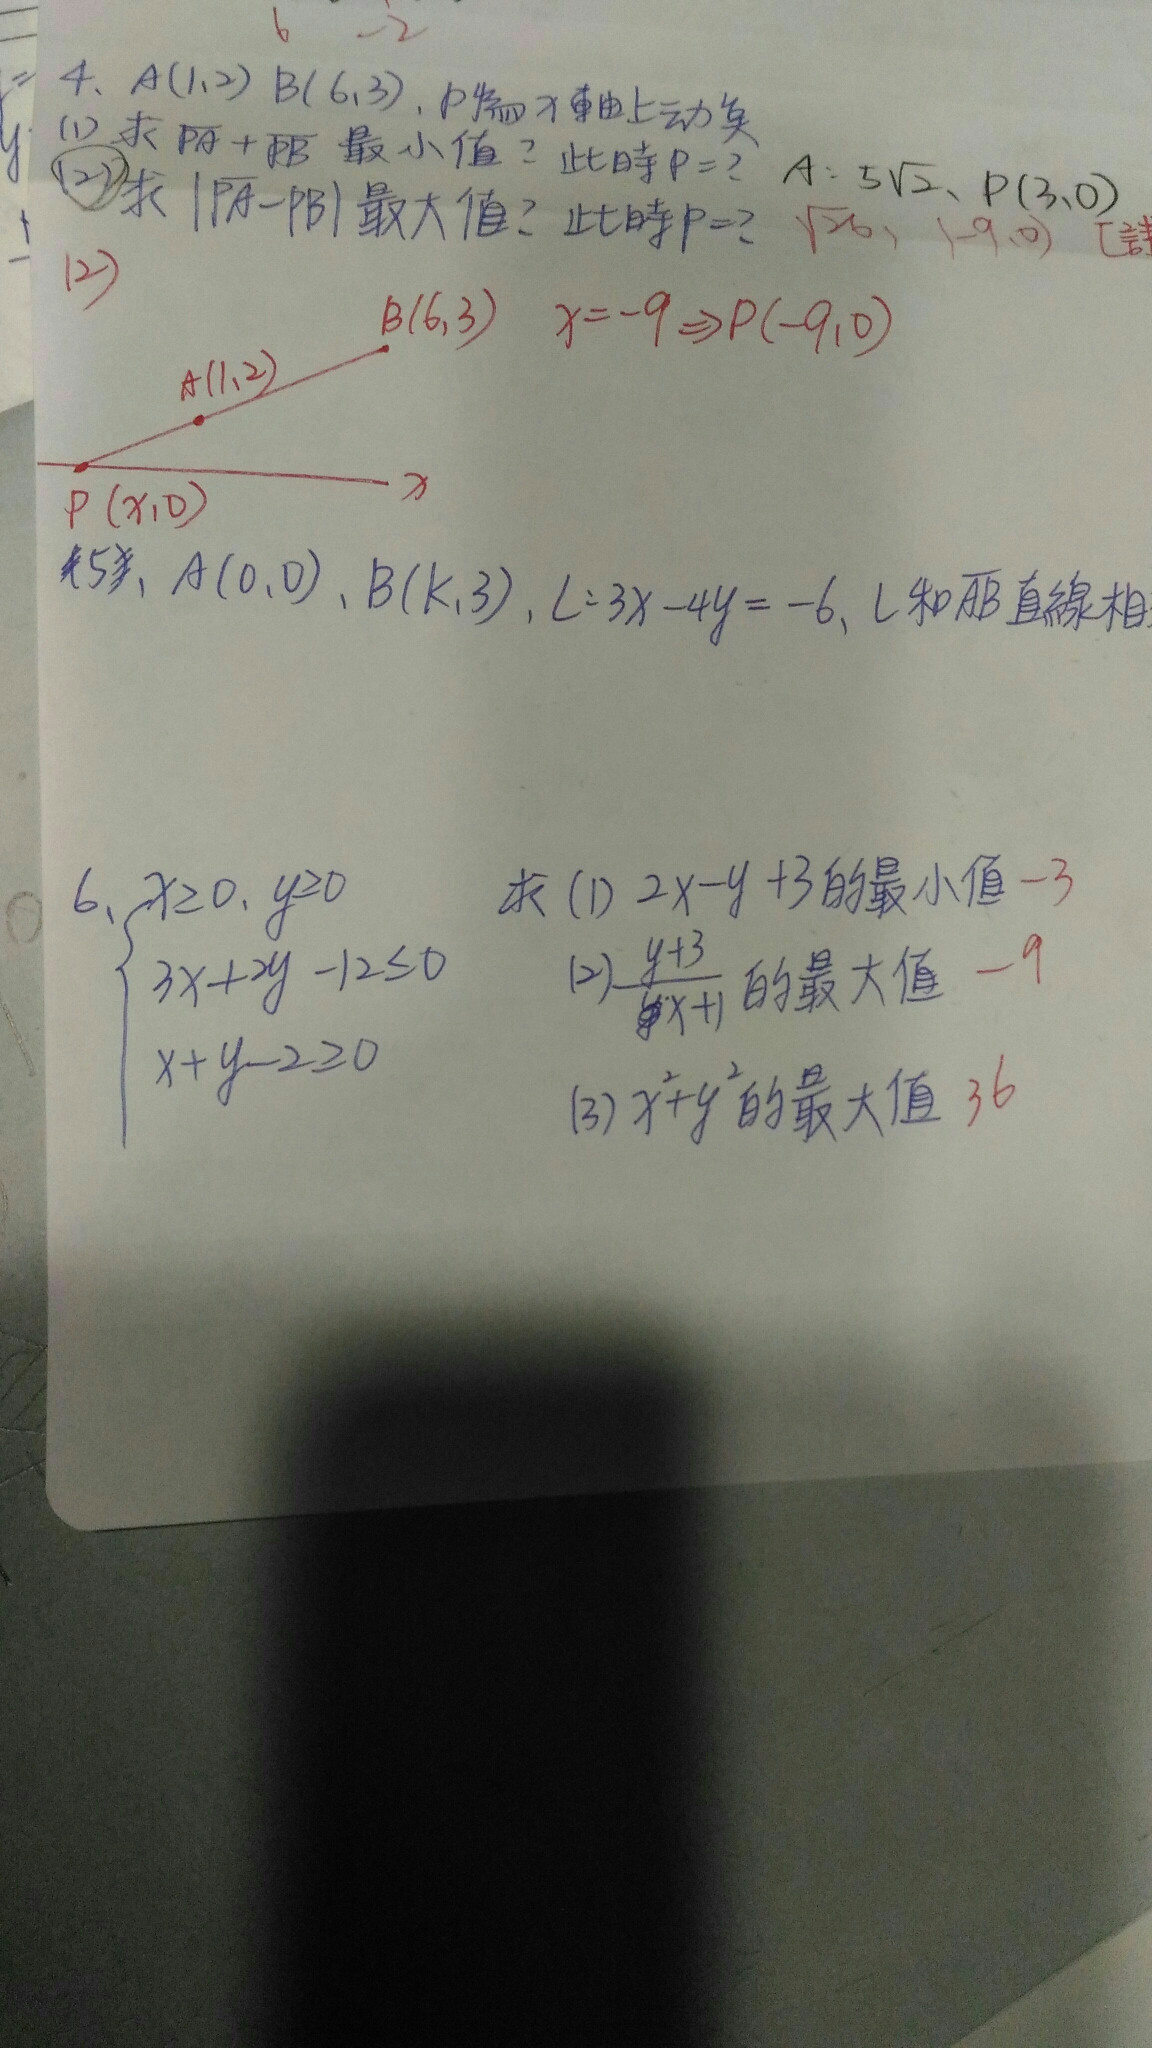 6 -2
4、A(1,2) B(6,3)、P為x軸上动矣
(1) 求 PA+PB 最小值？此時P=？ A: 5√2、P(3,0)
(2) 求 |PA-PB| 最大值？此時P=？ √26、(-9,0)
(2)
B(6,3) x=-9⇒P(-9,0)
A(1,2)
x
P(x,0)
5、A(0,0)、B(k,3)、L:3x-4y=-6、L和AB直線相
6、x≥0、y≥0 求 (1) 2x-y+3的最小值 -3
3x+2y-12≤0 (2) y+3/x+1 的最大值 -9
x+y-2≥0
(3) x²+y²的最大值 36